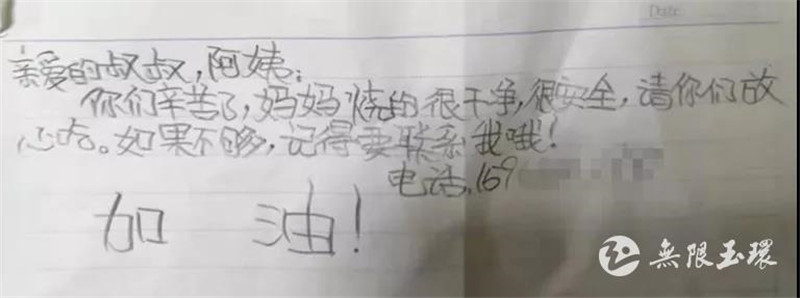 Date
亲爱的叔叔,阿姨:
你们辛苦了,妈妈烧的很干净,很安全,请你们放
心吃。如果不够,记得要联系我哦!
电话,159
加 油!
無限玉環